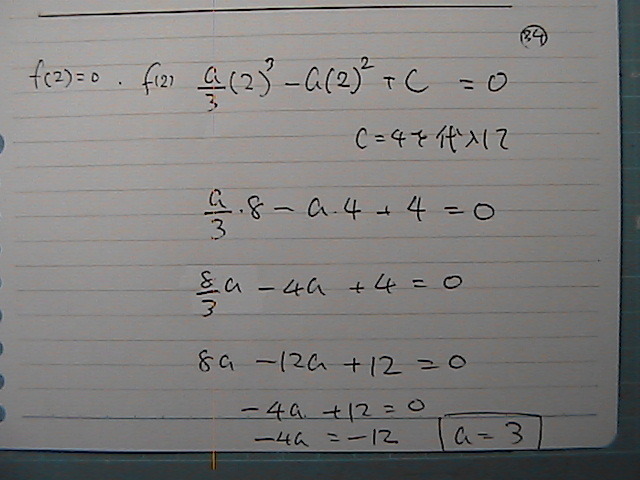 (34)
f(2)=0. f(2) a/3(2)³ - a(2)² + C = 0
C=4を代入して
a/3・8 - a・4 + 4 = 0
8/3a - 4a + 4 = 0
8a - 12a + 12 = 0
-4a + 12 = 0
-4a = -12 a = 3